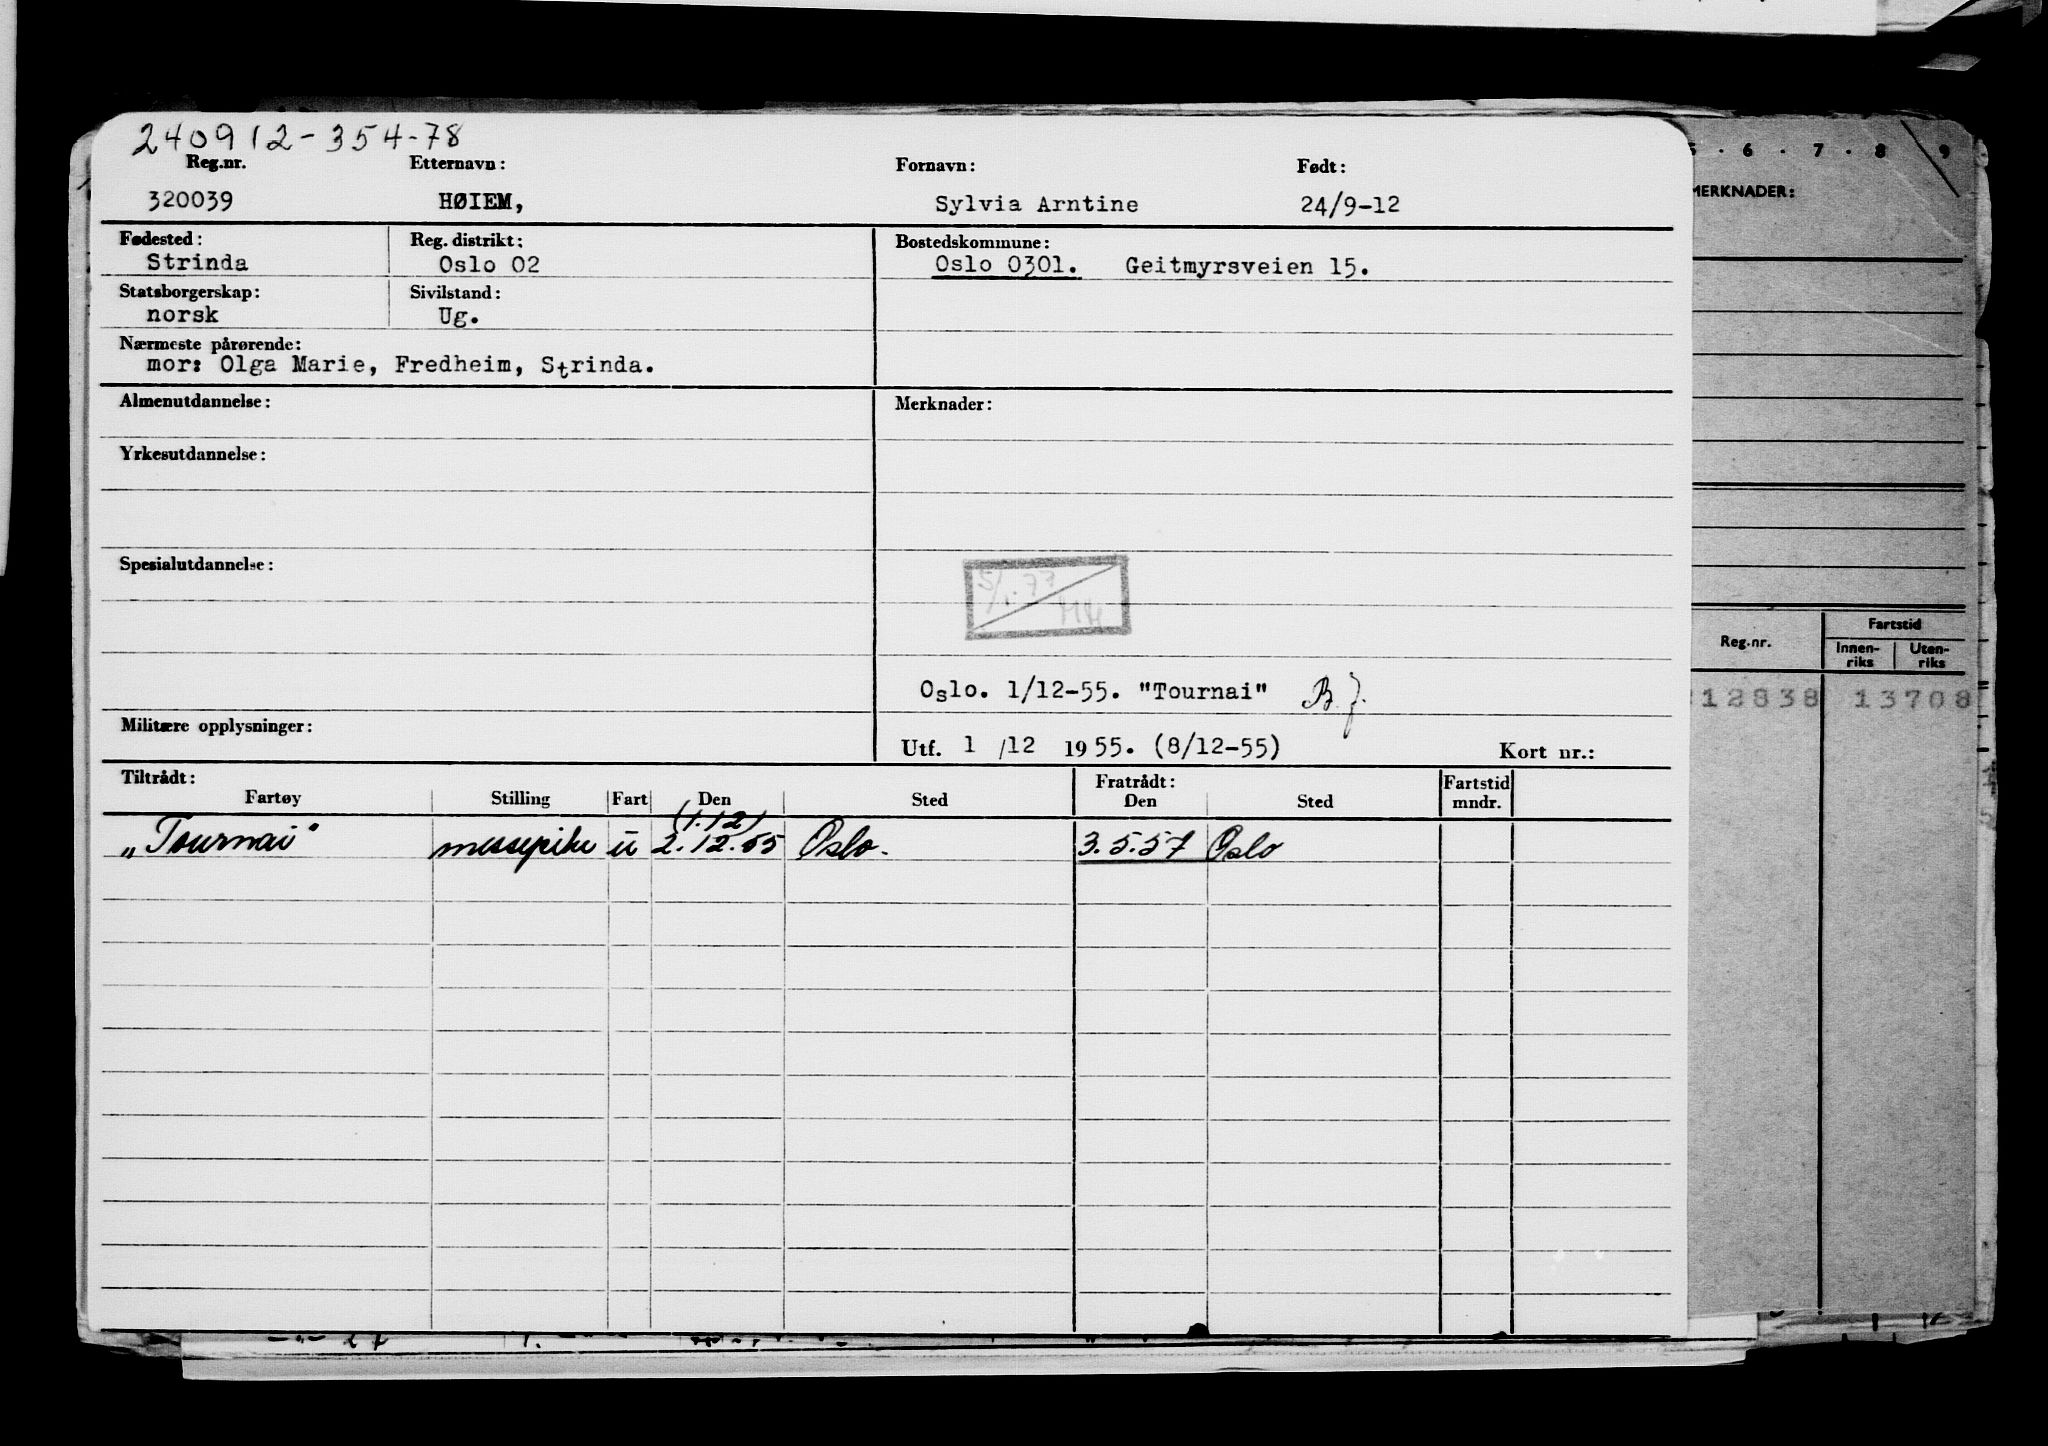 240912-354-78
Reg.nr. Etternavn: Fornavn: Født:
320039 HØIEM, Sylvia Arntine 24/9-12
Fødested: Reg. distrikt: Bostedskommune:
Strinda Oslo 02 Oslo 0301. Geitmyrsveien 15.
Statsborgerskap: Sivilstand:
norsk Ug.
Nærmeste pårørende:
mor: Olga Marie, Fredheim, Strinda.
Almenutdannelse: Merknader:
Yrkesutdannelse:
Spesialutdannelse:
5/1.77
HH
Oslo. 1/12-55. "Tournai" B.J.
Militære opplysninger:
Utf. 1 /12 1955. (8/12-55) Kort nr.:
Tiltrådt: Fratrådt: Fartstid
Fartøy Stilling Fart Den Sted Den Sted mndr.
(1.12)
„Tournai" messepike u 2.12.55 Oslo. 3.5.57 Oslo
6 . 7 . 8 9
MERKNADER:
Reg.nr. Fartstid
Innen-riks Uten-riks
12838 13708